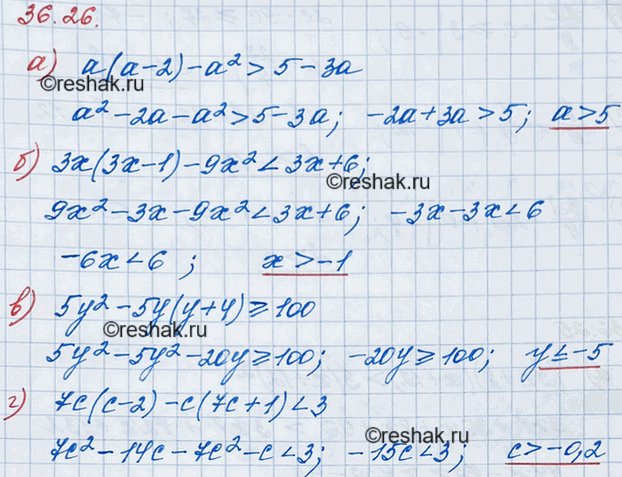 36.26.
а) a(a-2)-a²>5-3a
©reshak.ru
a²-2a-a²>5-3a; -2a+3a>5; a>5
б) 3x(3x-1)-9x²<3x+6;
©reshak.ru
9x²-3x-9x²<3x+6; -3x-3x<6
-6x<6 ; x>-1
в) 5y²-5y(y+4)≥100
©reshak.ru
5y²-5y²-20y≥100; -20y≥100; y≤-5
г) 7c(c-2)-c(7c+1)<3
©reshak.ru
7c²-14c-7c²-c<3; -15c<3; c>-0,2